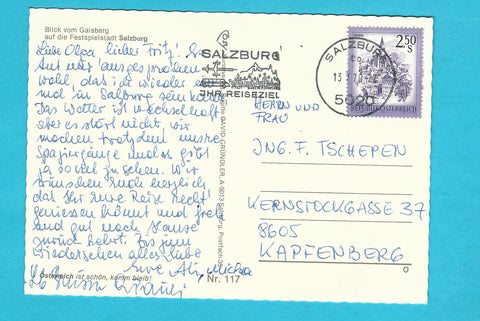 Blick vom Gaisberg
auf die Festspielstadt Salzburg
Liebe Olga lieber Fritz!
Hat mir ausgesprochen
wohl, das ich wieder ein
mal in Salzburg sein kann.
Das Wetter ist wechselhaft
aber es stört nicht, wir
machen trotzdem unsere
Spaziergänge und es gibt
ja so viel zu sehen. Wir
wünschen euch herzlich
das Ihr eure Reise recht
geniesen könnt und froh
und gut nach Hause
zurück kehrt. Bis zum
Wiedersehen alles Liebe
Eure
Österreich ist schön, komm bleib!
Nr. 117
SALZBURG
IHR REISEZIEL
SALZBURG
5020
2.50
S
REPUBLIK ÖSTERREICH
HERRN UND
FRAU
ING. F. TSCHEPEN
KERNSTOCKGASSE 37
8605
KAPFENBERG